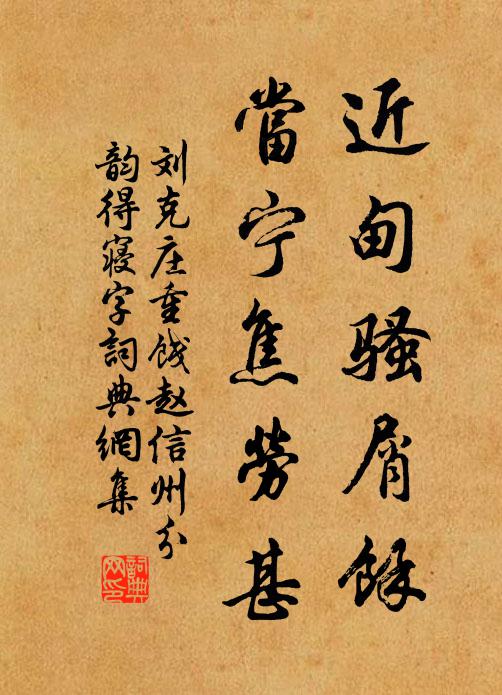 近甸骚屑馀
當宁焦勞甚
刘克庄重饯赵信州分
韵得寝字詞典網集
詞典
网印